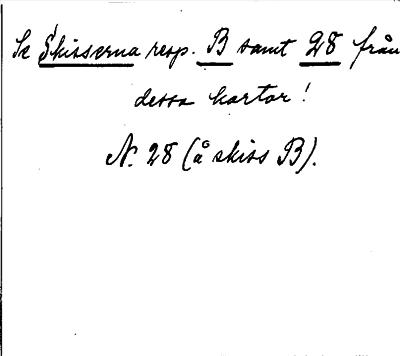 Se Skisserna resp. B samt 28 från
dessa kartor!
N. 28 (å skiss B).